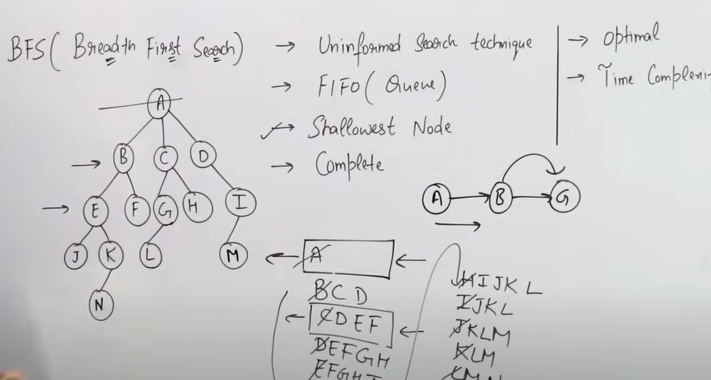 BFS( Breadth First Search)
→ Uninformed Search technique
→ FIFO( Queue)
→ Shallowest Node
→ Complete
→ Optimal
→ Time
A
B C D
E F G H I
J K L M
N
A B G
A
B C D
C D E F
D E F G H
E F G H I
H I J K L
I J K L
J K L M
K L M
L M N